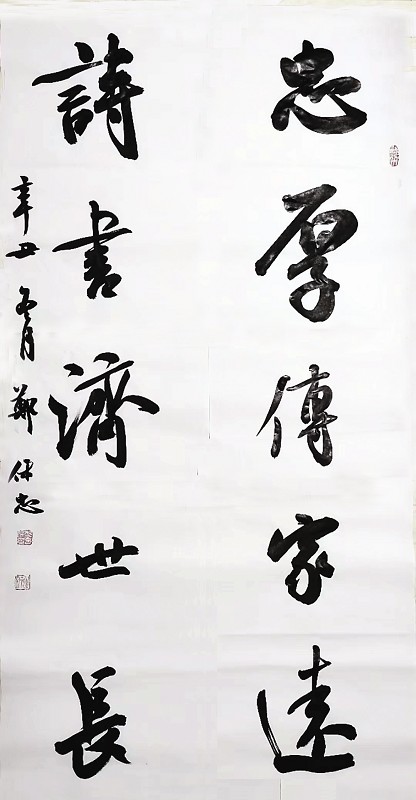 忠厚傳家遠
詩書濟世長
辛丑冬月鄭保忠